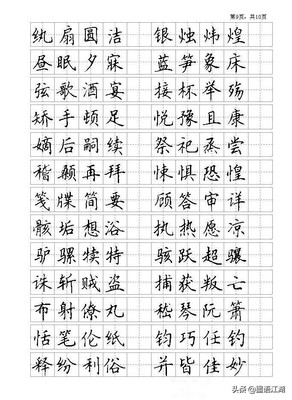 第9页，共10页
纨扇圆洁 银烛炜煌
昼眠夕寐 蓝笋象床
弦歌酒宴 接杯举殇
矫手顿足 悦豫且康
嫡后嗣续 祭祀蒸尝
稽颡再拜 悚惧恐惶
笺牒简要 顾答审详
骸垢想浴 执热愿凉
驴骡犊特 骇跃超骧
诛斩贼盗 捕获叛亡
布射僚丸 嵇琴阮箫
恬笔伦纸 钧巧任钓
释纷利俗 并皆佳妙
头条 @国语江湖